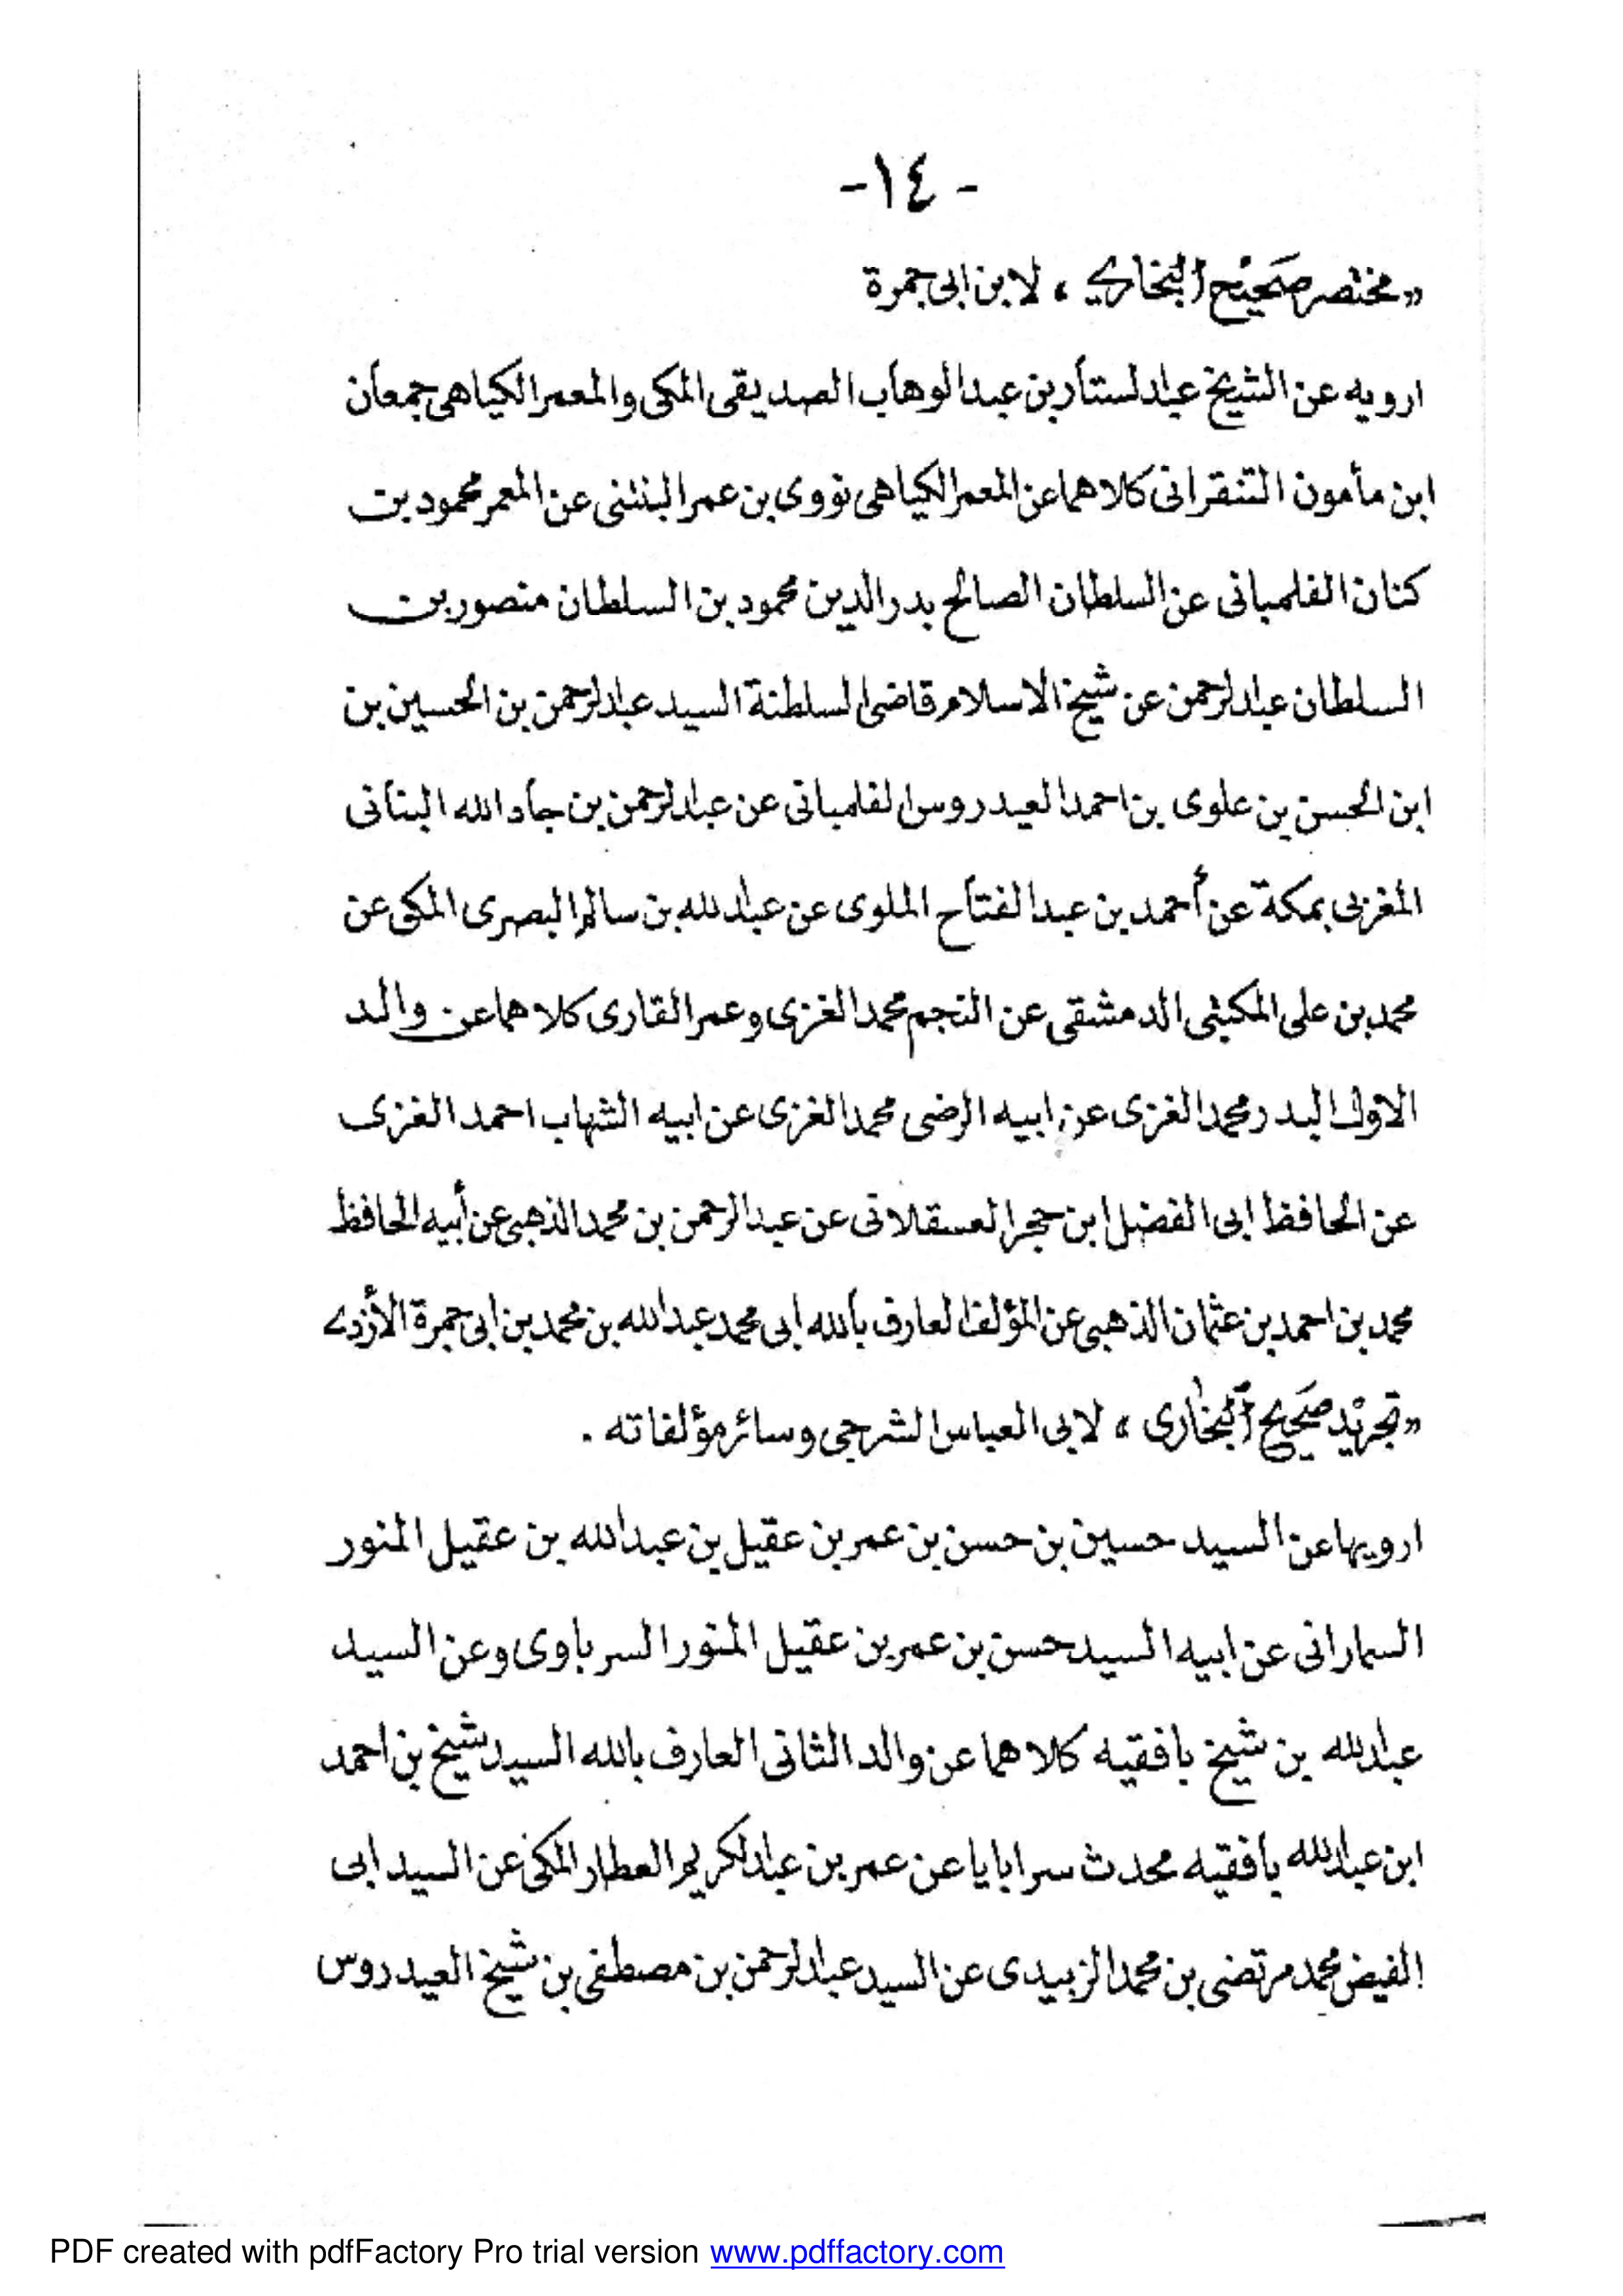 - ١٤ -
« مختصر صَحِيْح اْلبُخاري » لابن ابى جمرة
ارويه عن الشيخ عبدالستار بن عبدالوهاب الصديقى المكى والمعمر الكياهى جمعان
ابن مأمون التنقرانى كلاهما عن المعمر الكياهى نووى بن عمر البنتنى عن المعمر محمود بن
كنان الفلمبانى عن السلطان الصالح بدرالدين محمود بن السلطان منصور بن
السلطان عبدالرحمن عن شيخ الاسلام قاضى السلطنة السيد عبدالرحمن بن الحسين بن
ابن الحسن بن علوى بن احمد العيدروس الفلمبانى عن عبدالرحمن بن جاد الله البنانى
المغربى بمكة عن أحمد بن عبدالفتاح الملوى عن عبدالله بن سالم البصرى المكى عن
محمد بن على المكتبى الدمشقى عن النجم محمد الغزى وعمر القارى كلاهما عن والد
الاول البدر محمد الغزى عن ابيه الرضى محمد الغزى عن ابيه الشهاب احمد الغزى
عن الحافظ ابى الفضل ابن حجر العسقلانى عن عبدالرحمن بن محمد الذهبى عن أبيه الحافظ
محمد بن احمد بن عثمان الذهبى عن المؤلف العارف بالله ابى محمد عبدالله بن محمد بن ابى جمرة الأزدى
« تجريْد صَحِيح اْلبُخارى » لابى العباس الشرجى وسائر مؤلفاته .
ارويها عن السيد حسين بن حسن بن عمر بن عقيل بن عبدالله بن عقيل المنور
السمارانى عن ابيه السيد حسن بن عمر بن عقيل المنور السرباوى وعن السيد
عبدالله بن شيخ بافقيه كلاهما عن والد الثانى العارف بالله السيد شيخ بن احمد
ابن عبدالله بافقيه محدث سرابايا عن عمر بن عبدالكريم العطار المكى عن السيد ابى
الفيض محمد مرتضى بن محمد الزبيدى عن السيد عبدالرحمن بن مصطفى بن شيخ العيدروس
PDF created with pdfFactory Pro trial version www.pdffactory.com